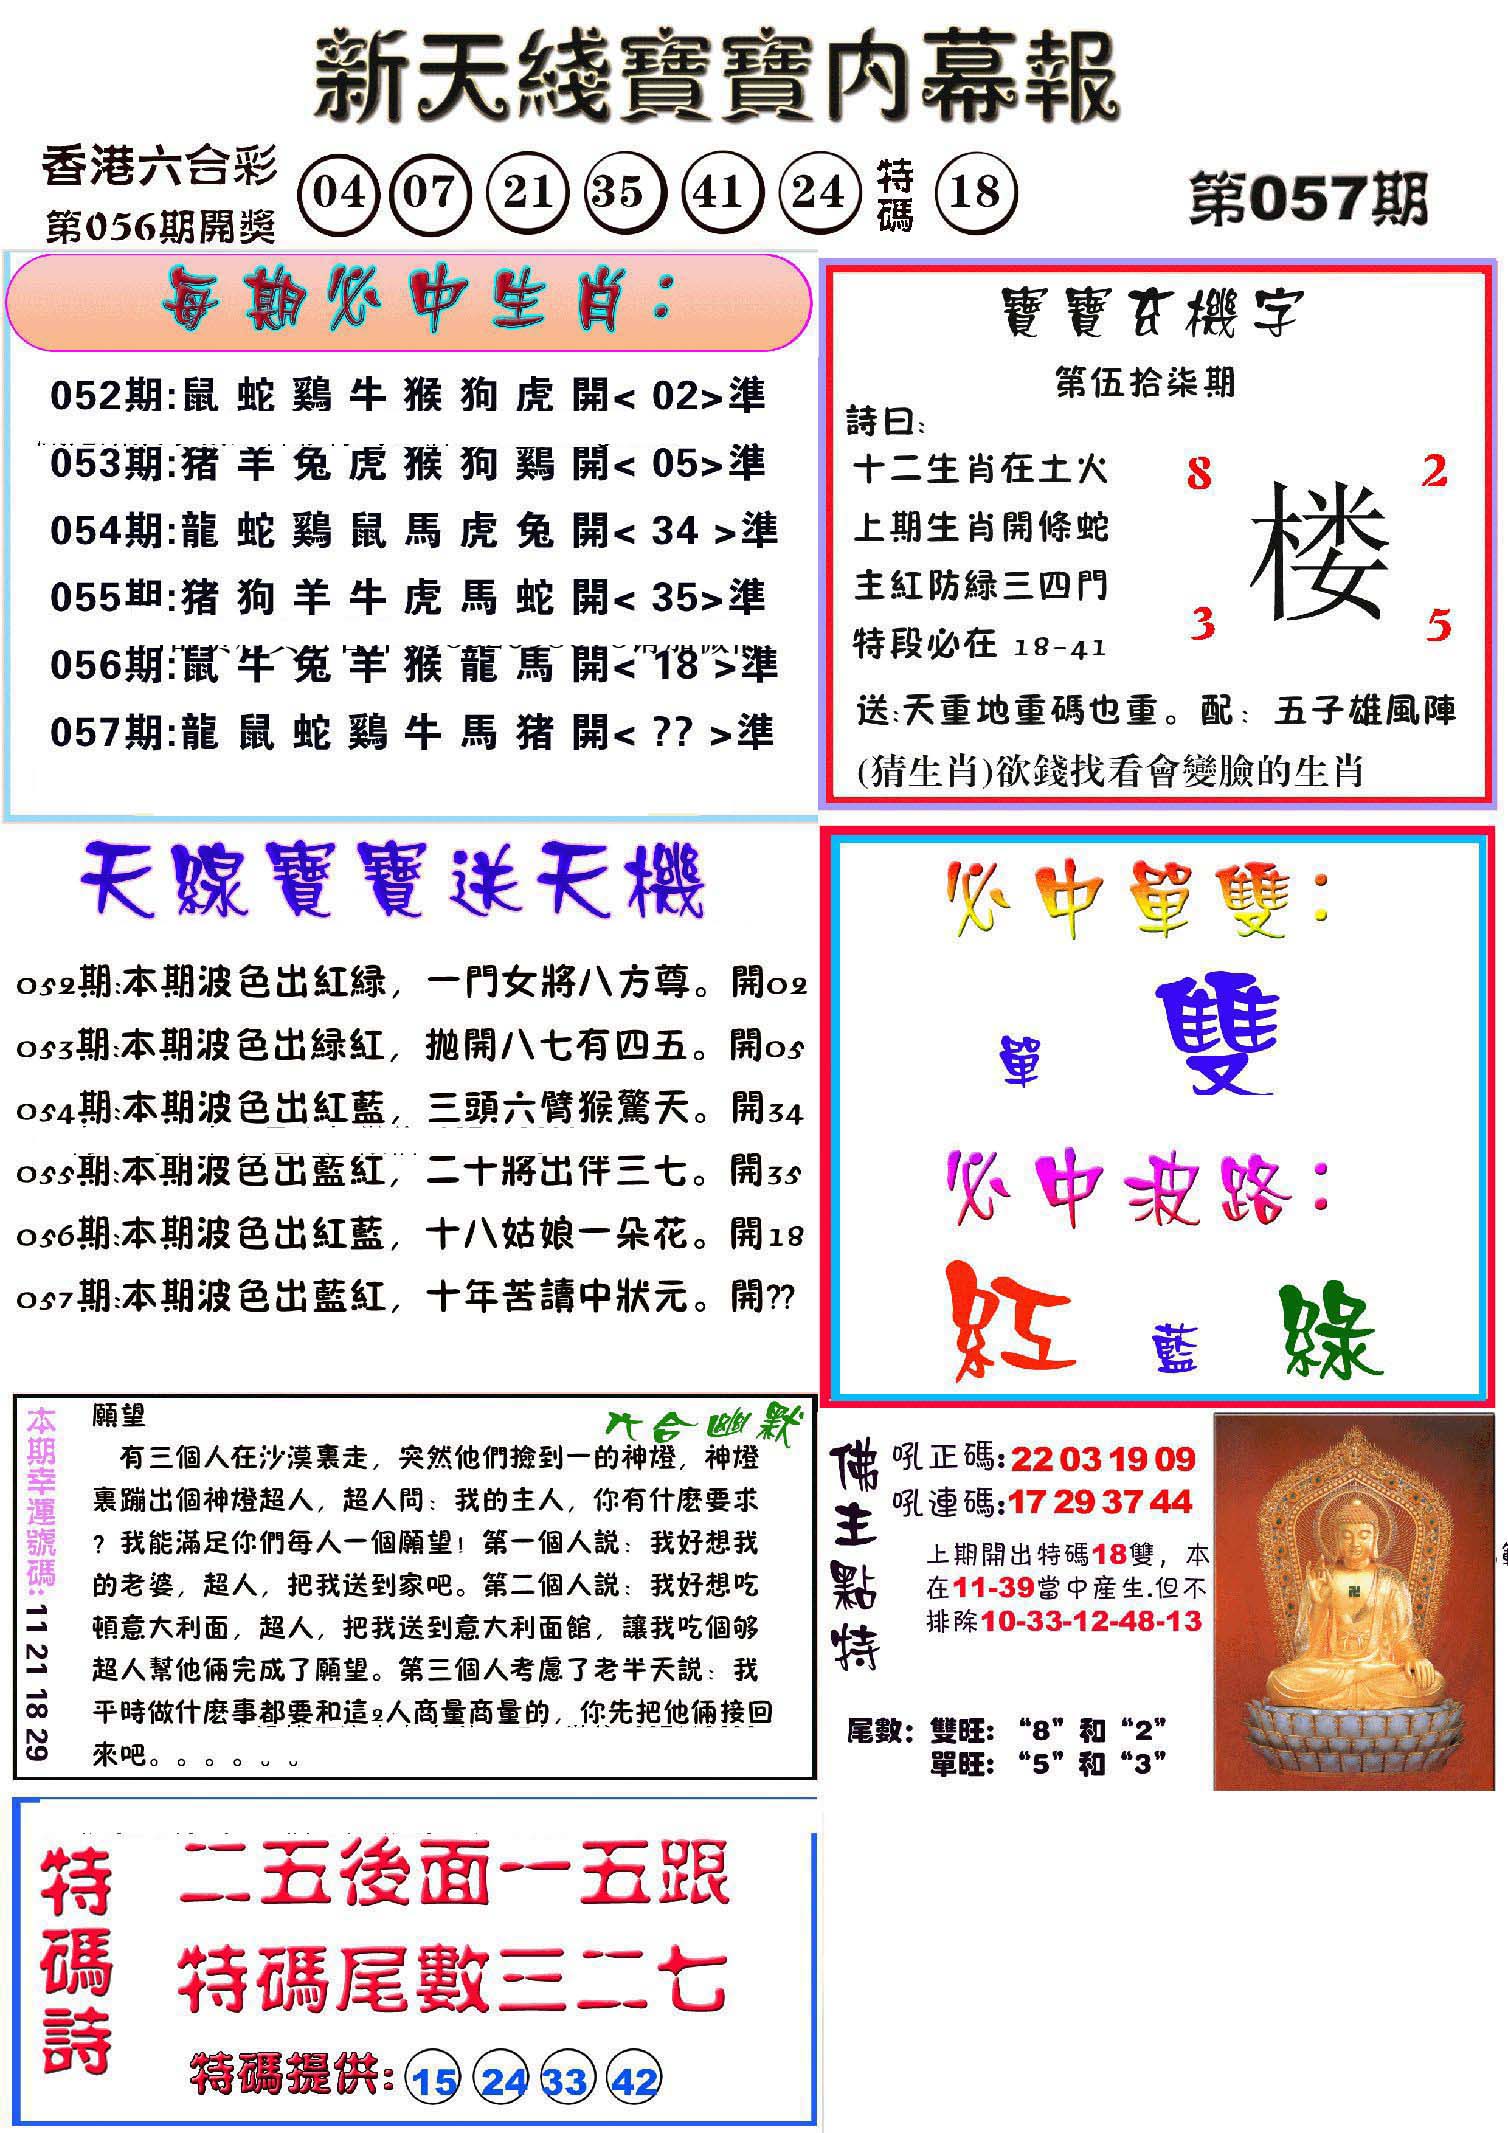 新天綫寶寶内幕報
香港六合彩
第056期開獎
04 07 21 35 41 24 特碼 18
第057期
每期必中生肖：
052期:鼠 蛇 鷄 牛 猴 狗 虎 開< 02>準
053期:猪 羊 兔 虎 猴 狗 鷄 開< 05>準
054期:龍 蛇 鷄 鼠 馬 虎 兔 開< 34 >準
055期:猪 狗 羊 牛 虎 馬 蛇 開< 35>準
056期:鼠 牛 兔 羊 猴 龍 馬 開< 18 >準
057期:龍 鼠 蛇 鷄 牛 馬 猪 開< ?? >準
寶寶玄機字
第伍拾柒期
詩曰:
十二生肖在土火
上期生肖開條蛇
主紅防緑三四門
特段必在 18-41
8 2
楼
3 5
送:天重地重碼也重。配：五子雄風陣
(猜生肖)欲錢找看會變臉的生肖
天線寶寶送天機
052期:本期波色出紅緑，一門女將八方尊。開02
053期:本期波色出緑紅，抛開八七有四五。開05
054期:本期波色出紅藍，三頭六臂猴驚天。開34
055期:本期波色出藍紅，二十將出伴三七。開35
056期:本期波色出紅藍，十八姑娘一朵花。開18
057期:本期波色出藍紅，十年苦讀中狀元。開??
必中單雙：
單 雙
必中波路：
紅 藍 綠
本期幸運號碼:11 21 18 29
願望
六合幽默
有三個人在沙漠裏走，突然他們撿到一的神燈，神燈
裏蹦出個神燈超人，超人問：我的主人，你有什麽要求
？我能滿足你們每人一個願望！第一個人説：我好想我
的老婆，超人，把我送到家吧。第二個人説：我好想吃
頓意大利面，超人，把我送到意大利面館，讓我吃個够
超人幫他倆完成了願望。第三個人考慮了老半天説：我
平時做什麽事都要和這2人商量商量的，你先把他倆接回
來吧。。。。。。
佛主點特
吼正碼:22 03 19 09
吼連碼:17 29 37 44
上期開出特碼18雙，本
在11-39當中産生.但不
排除10-33-12-48-13
尾數：雙旺：“8”和“2”
單旺：“5”和“3”
特碼詩
二五後面一五跟
特碼尾數三二七
特碼提供:15 24 33 42